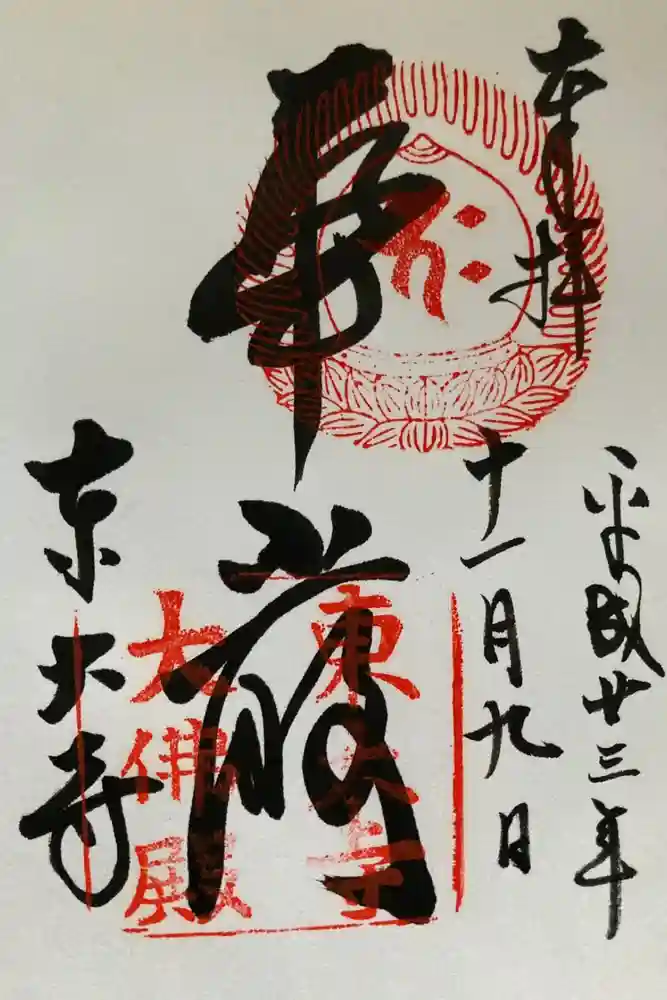 奉拝
平成廿三年
十一月九日
華厳
東大寺
東大寺
大佛殿